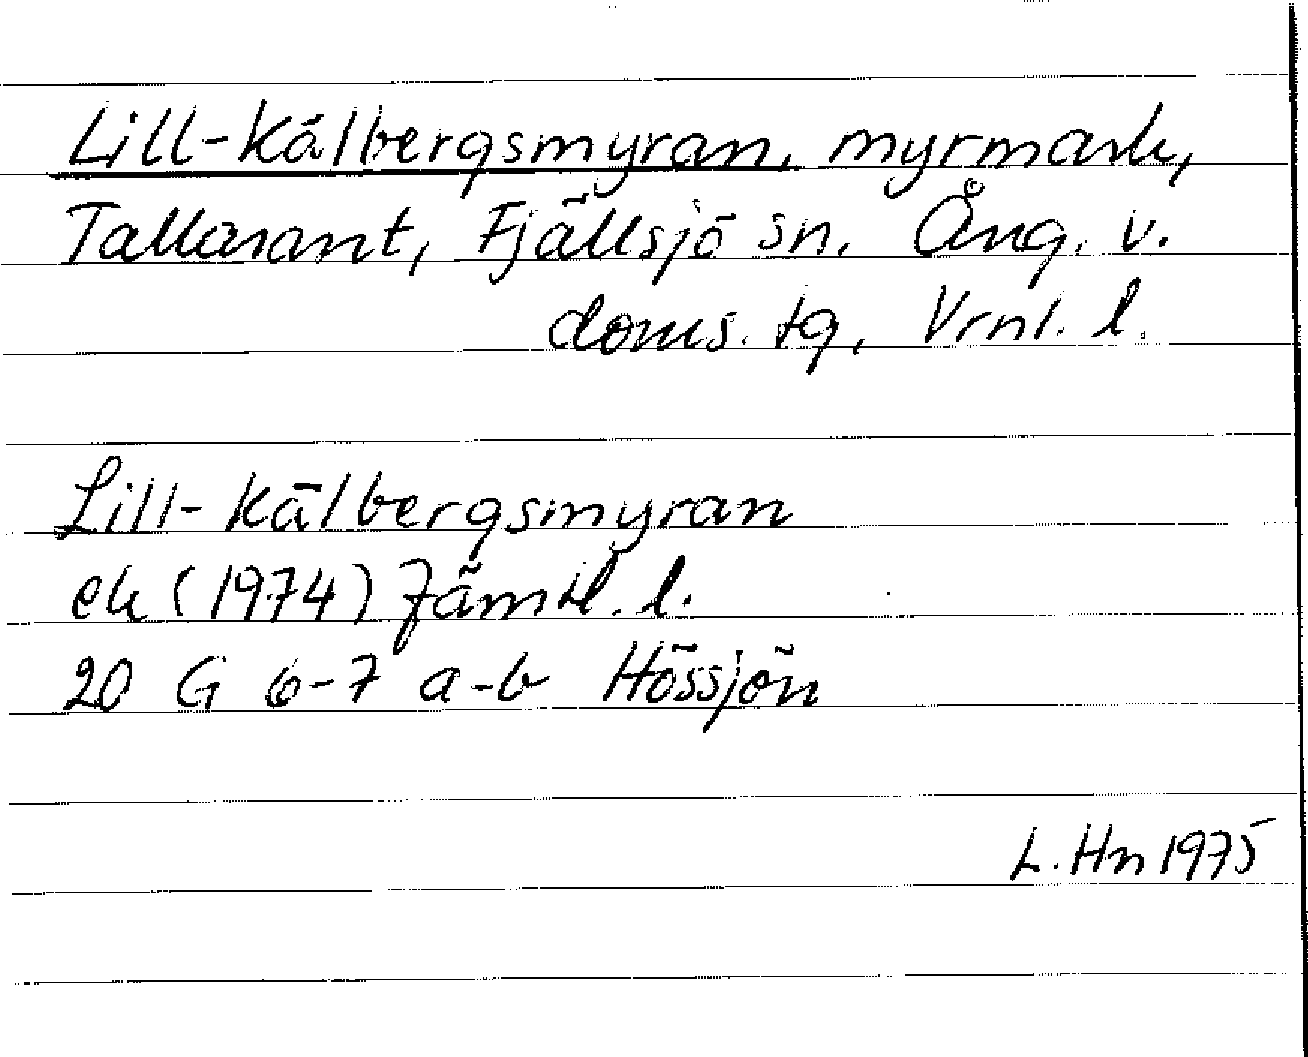 Lill-Kälbergsmyran, myrmark,
Tallåsant, Fjällsjö sn, Ång. v.
doms. tg, Vrnl. l.
Lill-Kälbergsmyran
ek (1974) Jämtl. l.
20 G 6-7 a-b Hössjön
L. Hn 1975